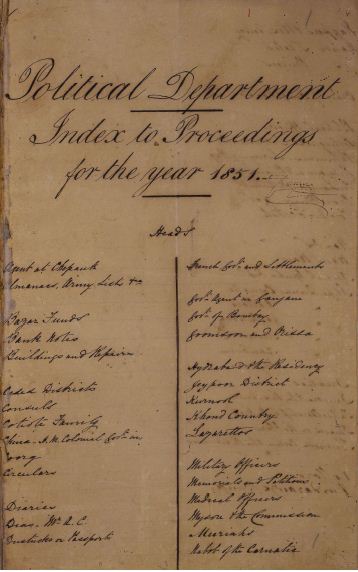 Political Department
Index to Proceedings
for the year 1851.
Heads
Agent at Chepauk
Almanacs, Army Lists &c
Bazar Funds
Bank Notes
Buildings and Repairs
Ceded Districts
Consuls
Catholic Family
China. H.M. Colonial Govt. in
Coorg
Circulars
Diaries
Dias. Mr. A. C.
Dustucks or Passports
French Govt. and Settlements
Govt. Agent in Ganjam
Govt. of Bombay
Goomsoor and Orissa
Hydrabad & the Residency
Jeypoor District
Kurnool
Khond Country
Lazarettos
Military Officers
Memorials and Petitions
Medical Officers
Mysore & the Commission
Meriahs
Nabob of the Carnatic